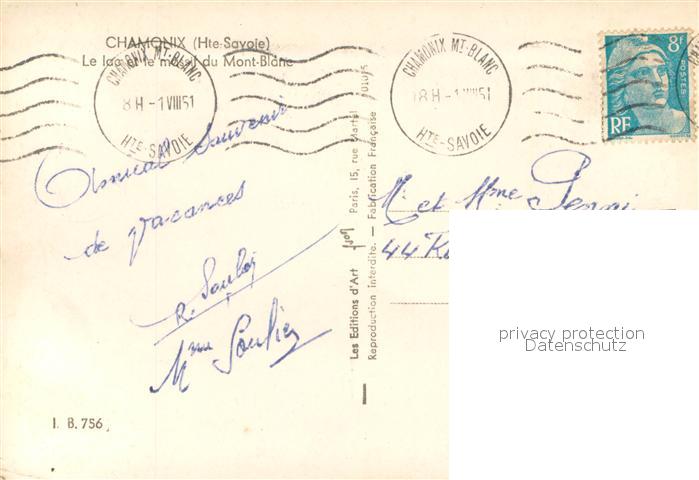 CHAMONIX (Hte-Savoie)
Le lac et le massif du Mont-Blanc
CHAMONIX MT-BLANC
18H - 1 VIII 51
HTE-SAVOIE
CHAMONIX MT-BLANC
18H - 1 VIII 51
HTE-SAVOIE
8F
POSTES
RF
Amical Souvenir
de vacances
R. Soulier
Mme Soulier
Les Editions d'Art Paris, 15, rue Martel
Reproduction interdite. — Fabrication Française
M. et Mme
44
I. B. 756
privacy protection
Datenschutz